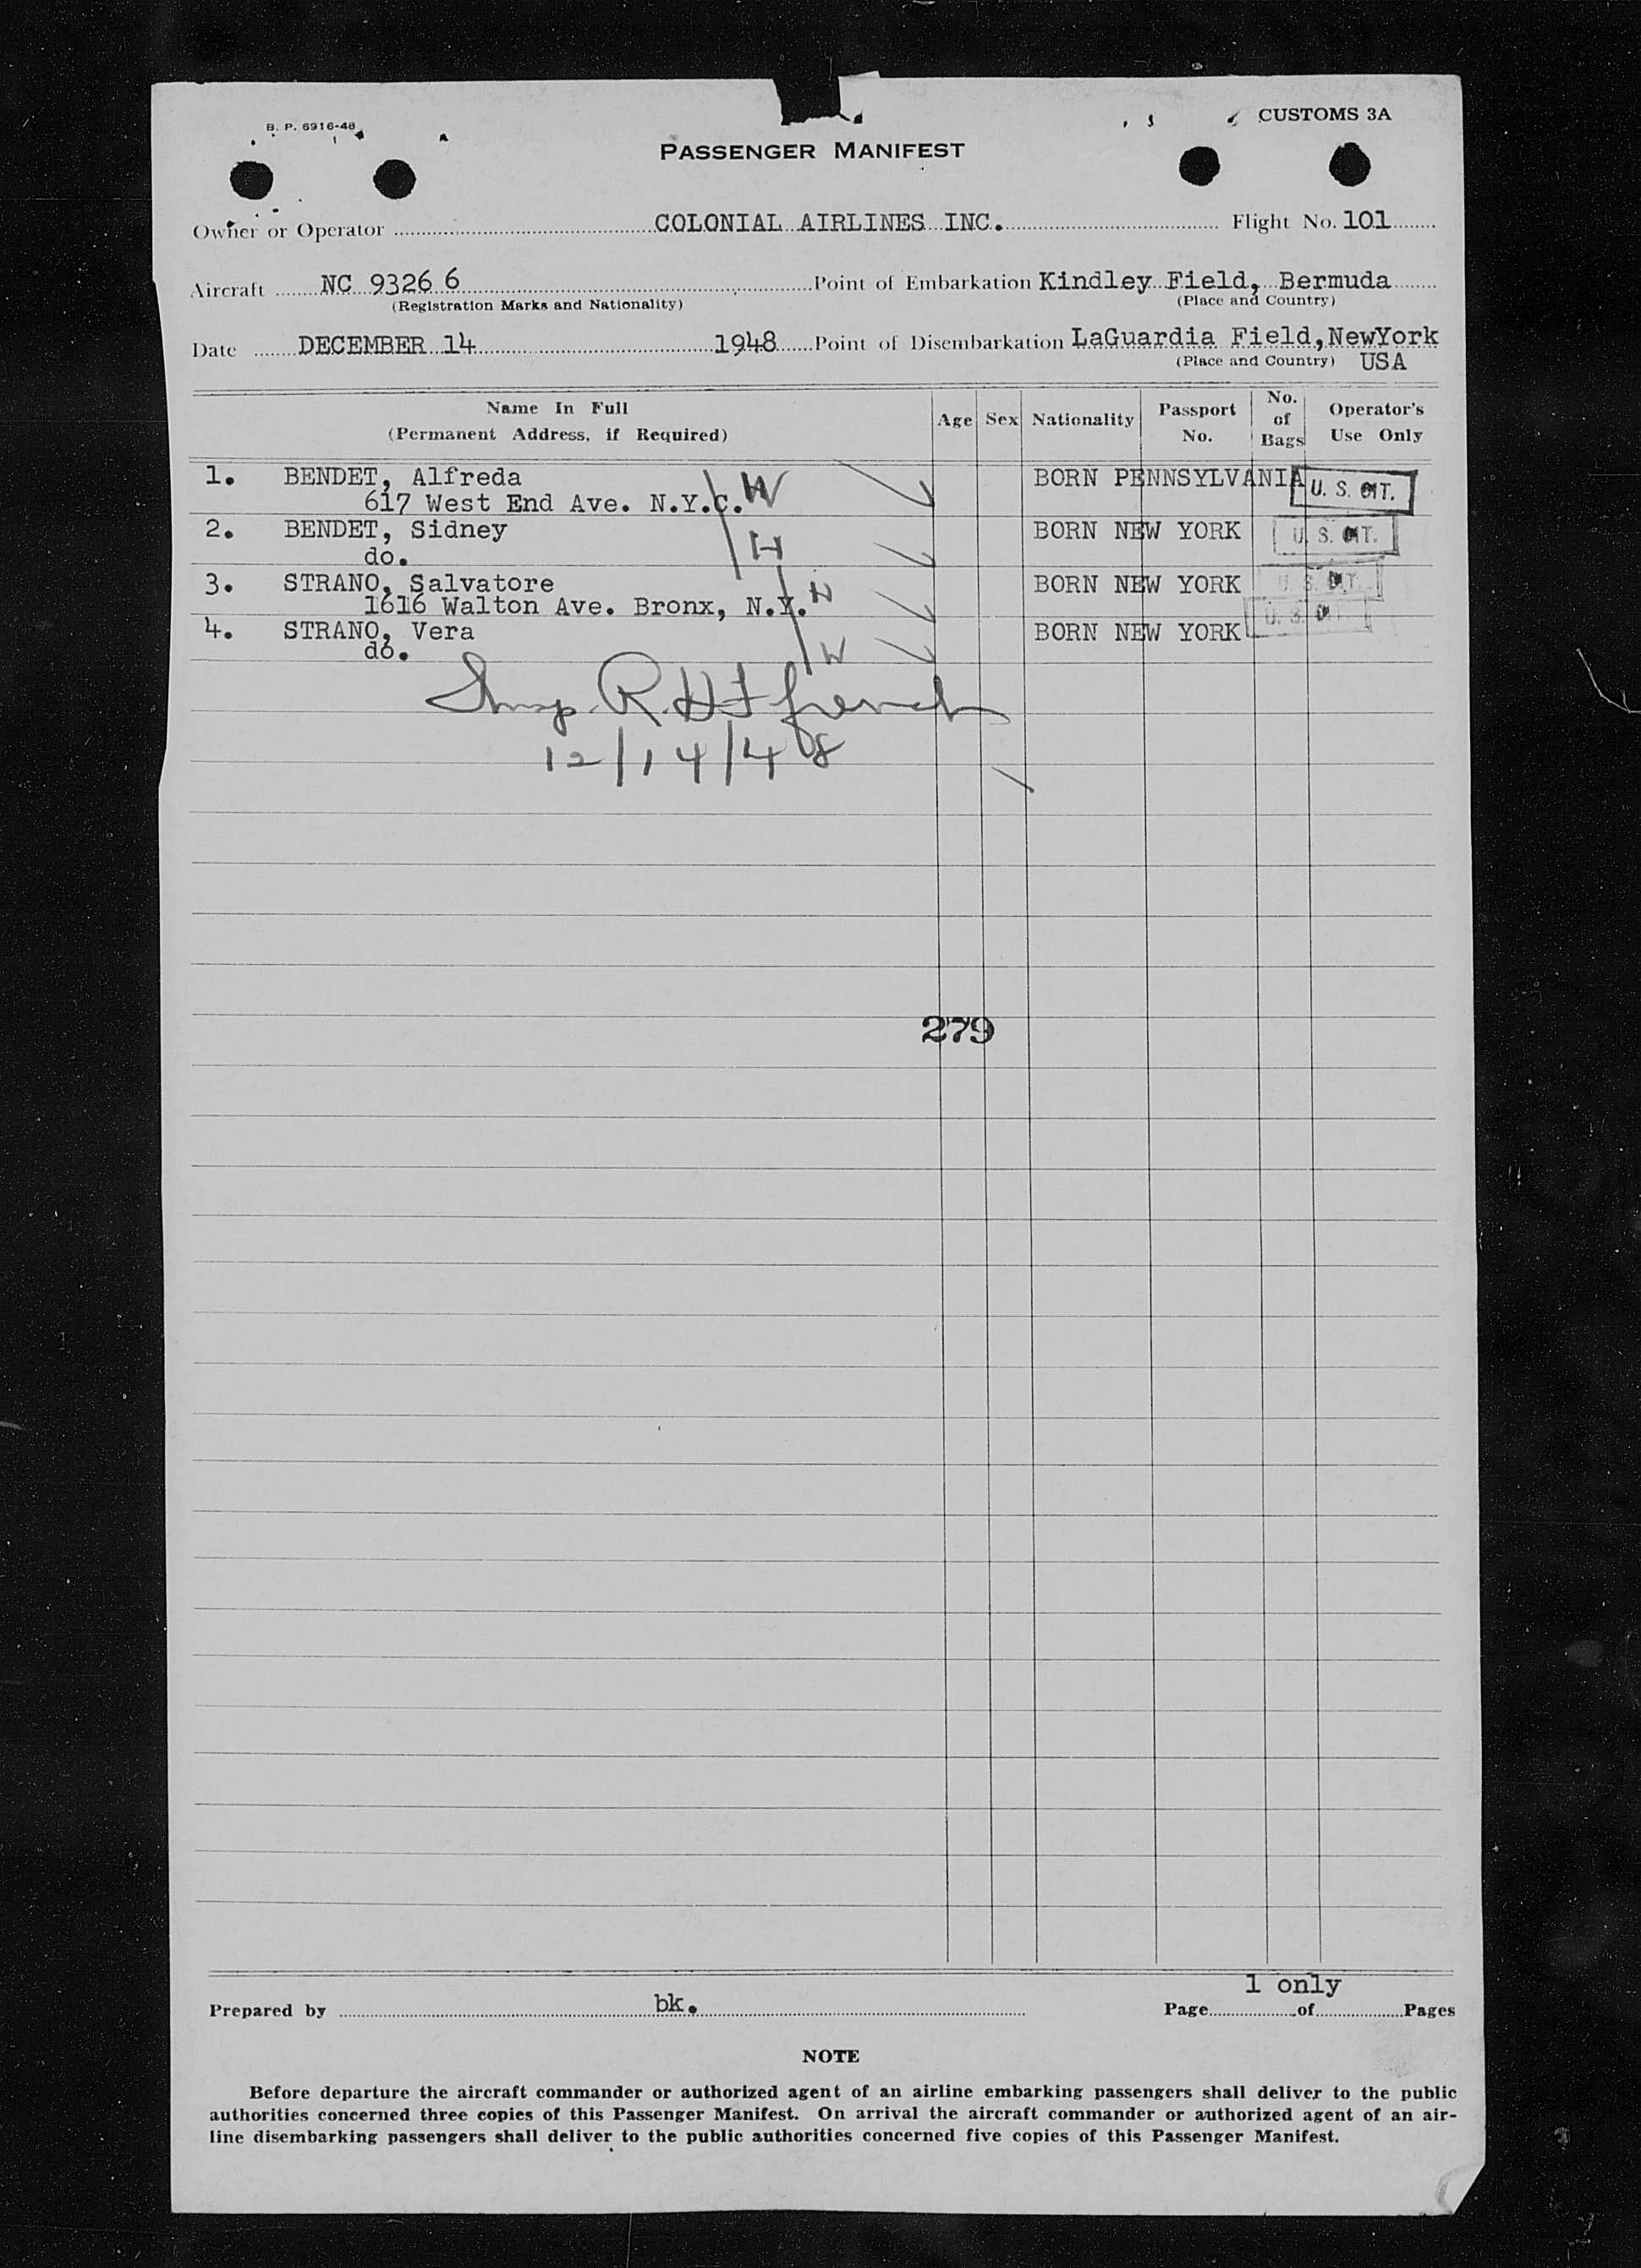 B. P. 6916-48
CUSTOMS 3A
PASSENGER MANIFEST
Owner or Operator COLONIAL AIRLINES INC. Flight No. 101
Aircraft NC 93266 Point of Embarkation Kindley Field, Bermuda
(Registration Marks and Nationality) (Place and Country)
Date DECEMBER 14 1948 Point of Disembarkation LaGuardia Field, NewYork
(Place and Country) USA
Name In Full (Permanent Address, if Required) Age Sex Nationality Passport No. No. of Bags Operator's Use Only
1. BENDET, Alfreda BORN PENNSYLVANIA U. S. CIT.
617 West End Ave. N.Y.C. W
2. BENDET, Sidney BORN NEW YORK U. S. CIT.
do. H
3. STRANO, Salvatore BORN NEW YORK U. S. CIT.
1616 Walton Ave. Bronx, N.Y. H
4. STRANO, Vera BORN NEW YORK U. S. CIT.
do. W
Insp. R. French
12/14/48
279
1 only
Prepared by bk. Page of Pages
NOTE
Before departure the aircraft commander or authorized agent of an airline embarking passengers shall deliver to the public
authorities concerned three copies of this Passenger Manifest. On arrival the aircraft commander or authorized agent of an air-
line disembarking passengers shall deliver to the public authorities concerned five copies of this Passenger Manifest.